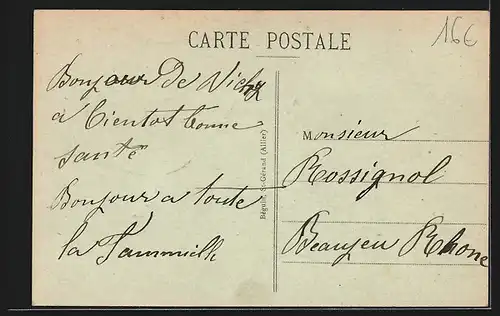 CARTE POSTALE
16€
Bonjour de Vichy
a bientot bonne
santé
Bonjour a toute
la fammille
Béguin, St-Gérand (Allier)
Monsieur
Rossignol
Beaujeu Rhone